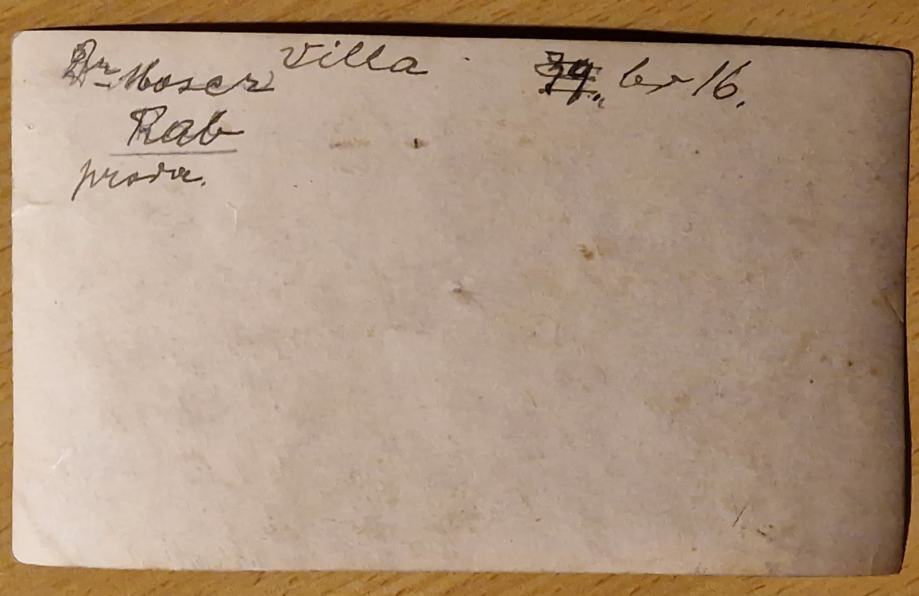 Dr Moser Villa 39. br 16.
Rab